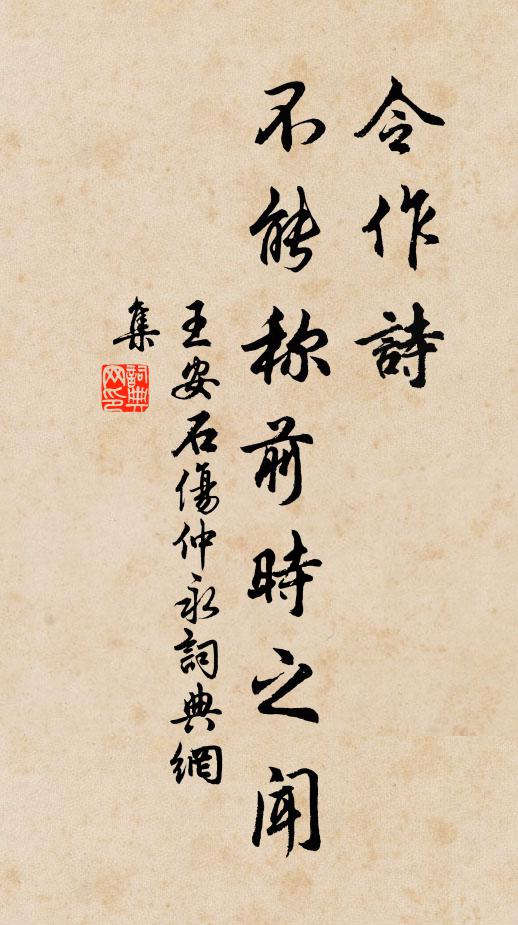 令作詩
不能称前時之聞
王安石傷仲永詞典網
集
詞典
网印